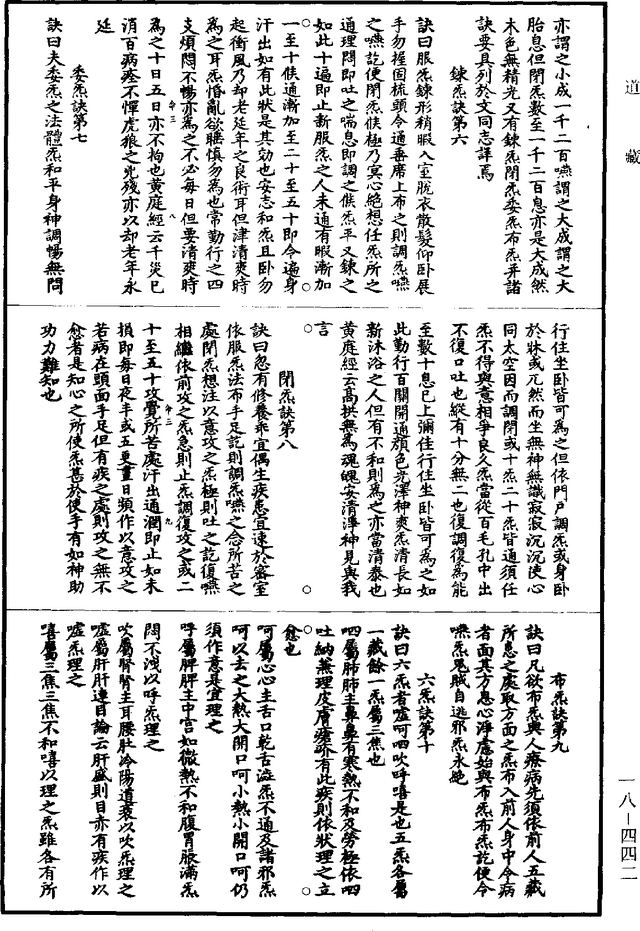 道藏
亦謂之小成一千二百嚥謂之大成謂之大
胎息但閉炁數至一千二百息亦是大成然
木色無精光又有鍊炁閉炁委炁布炁并諸
訣要具列於文同志詳焉
鍊炁訣第六
訣曰服炁鍊形稍暇入室脫衣散髮仰卧展
手勿握固梳頭令通垂席上布之則調炁嚥
之嚥訖便閉炁候極乃冥心絕想任炁所之
通理悶即吐之喘息即調之候炁平又鍊之
如此十遍即止新服炁之人未通有暇漸加
一至十候通漸加至二十至五十即令遍身
汗出如有此狀是其効也安志和炁且卧勿
起衝風乃却老延年之良術耳但津清爽時
為之耳炁惛亂欲睡慎勿為也常勤行之四
支煩悶不暢亦為之不必每日但要清爽時
為之十日五日亦不拘也黃庭經云千災已
消百病痊不憚虎狼之兇殘亦以却老年永
延
委炁訣第七
訣曰夫委炁之法體炁和平身神調暢無問
行住坐卧皆可為之但依門戶調炁或身卧
於牀或兀然而坐無神無識寂寂沉沉使心
同太空因而調閉或十炁二十炁皆通須任
炁不得與意相爭良久炁當從百毛孔中出
不復口吐也縱有十分無二也復調復為能
至數十息已上彌佳行住坐卧皆可為之如
此勤行百關開通顏色光澤神爽炁清長如
新沐浴之人但有不和則為之亦當清泰也
黃庭經云高拱無為魂魄安清淨神見與我
言
閉炁訣第八
訣曰忽有修養乖宜偶生疾患宜速於密室
依服炁法布手足訖則調炁嚥之念所苦之
處閉炁想注以意攻之炁極則吐之訖復嚥
相繼依前攻之炁急則止炁調復攻之或二
十至五十攻覺所苦處汗出通潤即止如未
損即每日夜半或五更晝日頻作以意攻之
若病在頭面手足但有疾之處則攻之無不
愈者是知心之所使炁甚於使手有如神助
功力難知也
布炁訣第九
訣曰凡欲布炁與人療病先須依前人五藏
所患之處取方面之炁布入前人身中令病
者面其方息心淨慮始與布炁布炁訖便令
嚥炁鬼賊自逃邪炁永絕
六炁訣第十
訣曰六炁者噓呵呬吹呼嘻是也五炁各屬
一藏餘一炁屬三焦也
呬屬肺肺主鼻鼻有寒熱不和及勞極依呬
吐納兼理皮膚瘡疥有此疾則依狀理之立
愈也
呵屬心心主舌口乾舌澁炁不通及諸邪炁
呵以去之大熱大開口呵小熱小開口呵仍
須作意是宜理之
呼屬脾脾主中宮如微熱不和腹胃脹滿炁
悶不洩以呼炁理之
吹屬腎腎主耳腰肚冷陽道衰以吹炁理之
噓屬肝肝連目論云肝盛則目赤有疾作以
噓炁理之
嘻屬三焦三焦不和嘻以理之炁雖各有所
一八—四四二